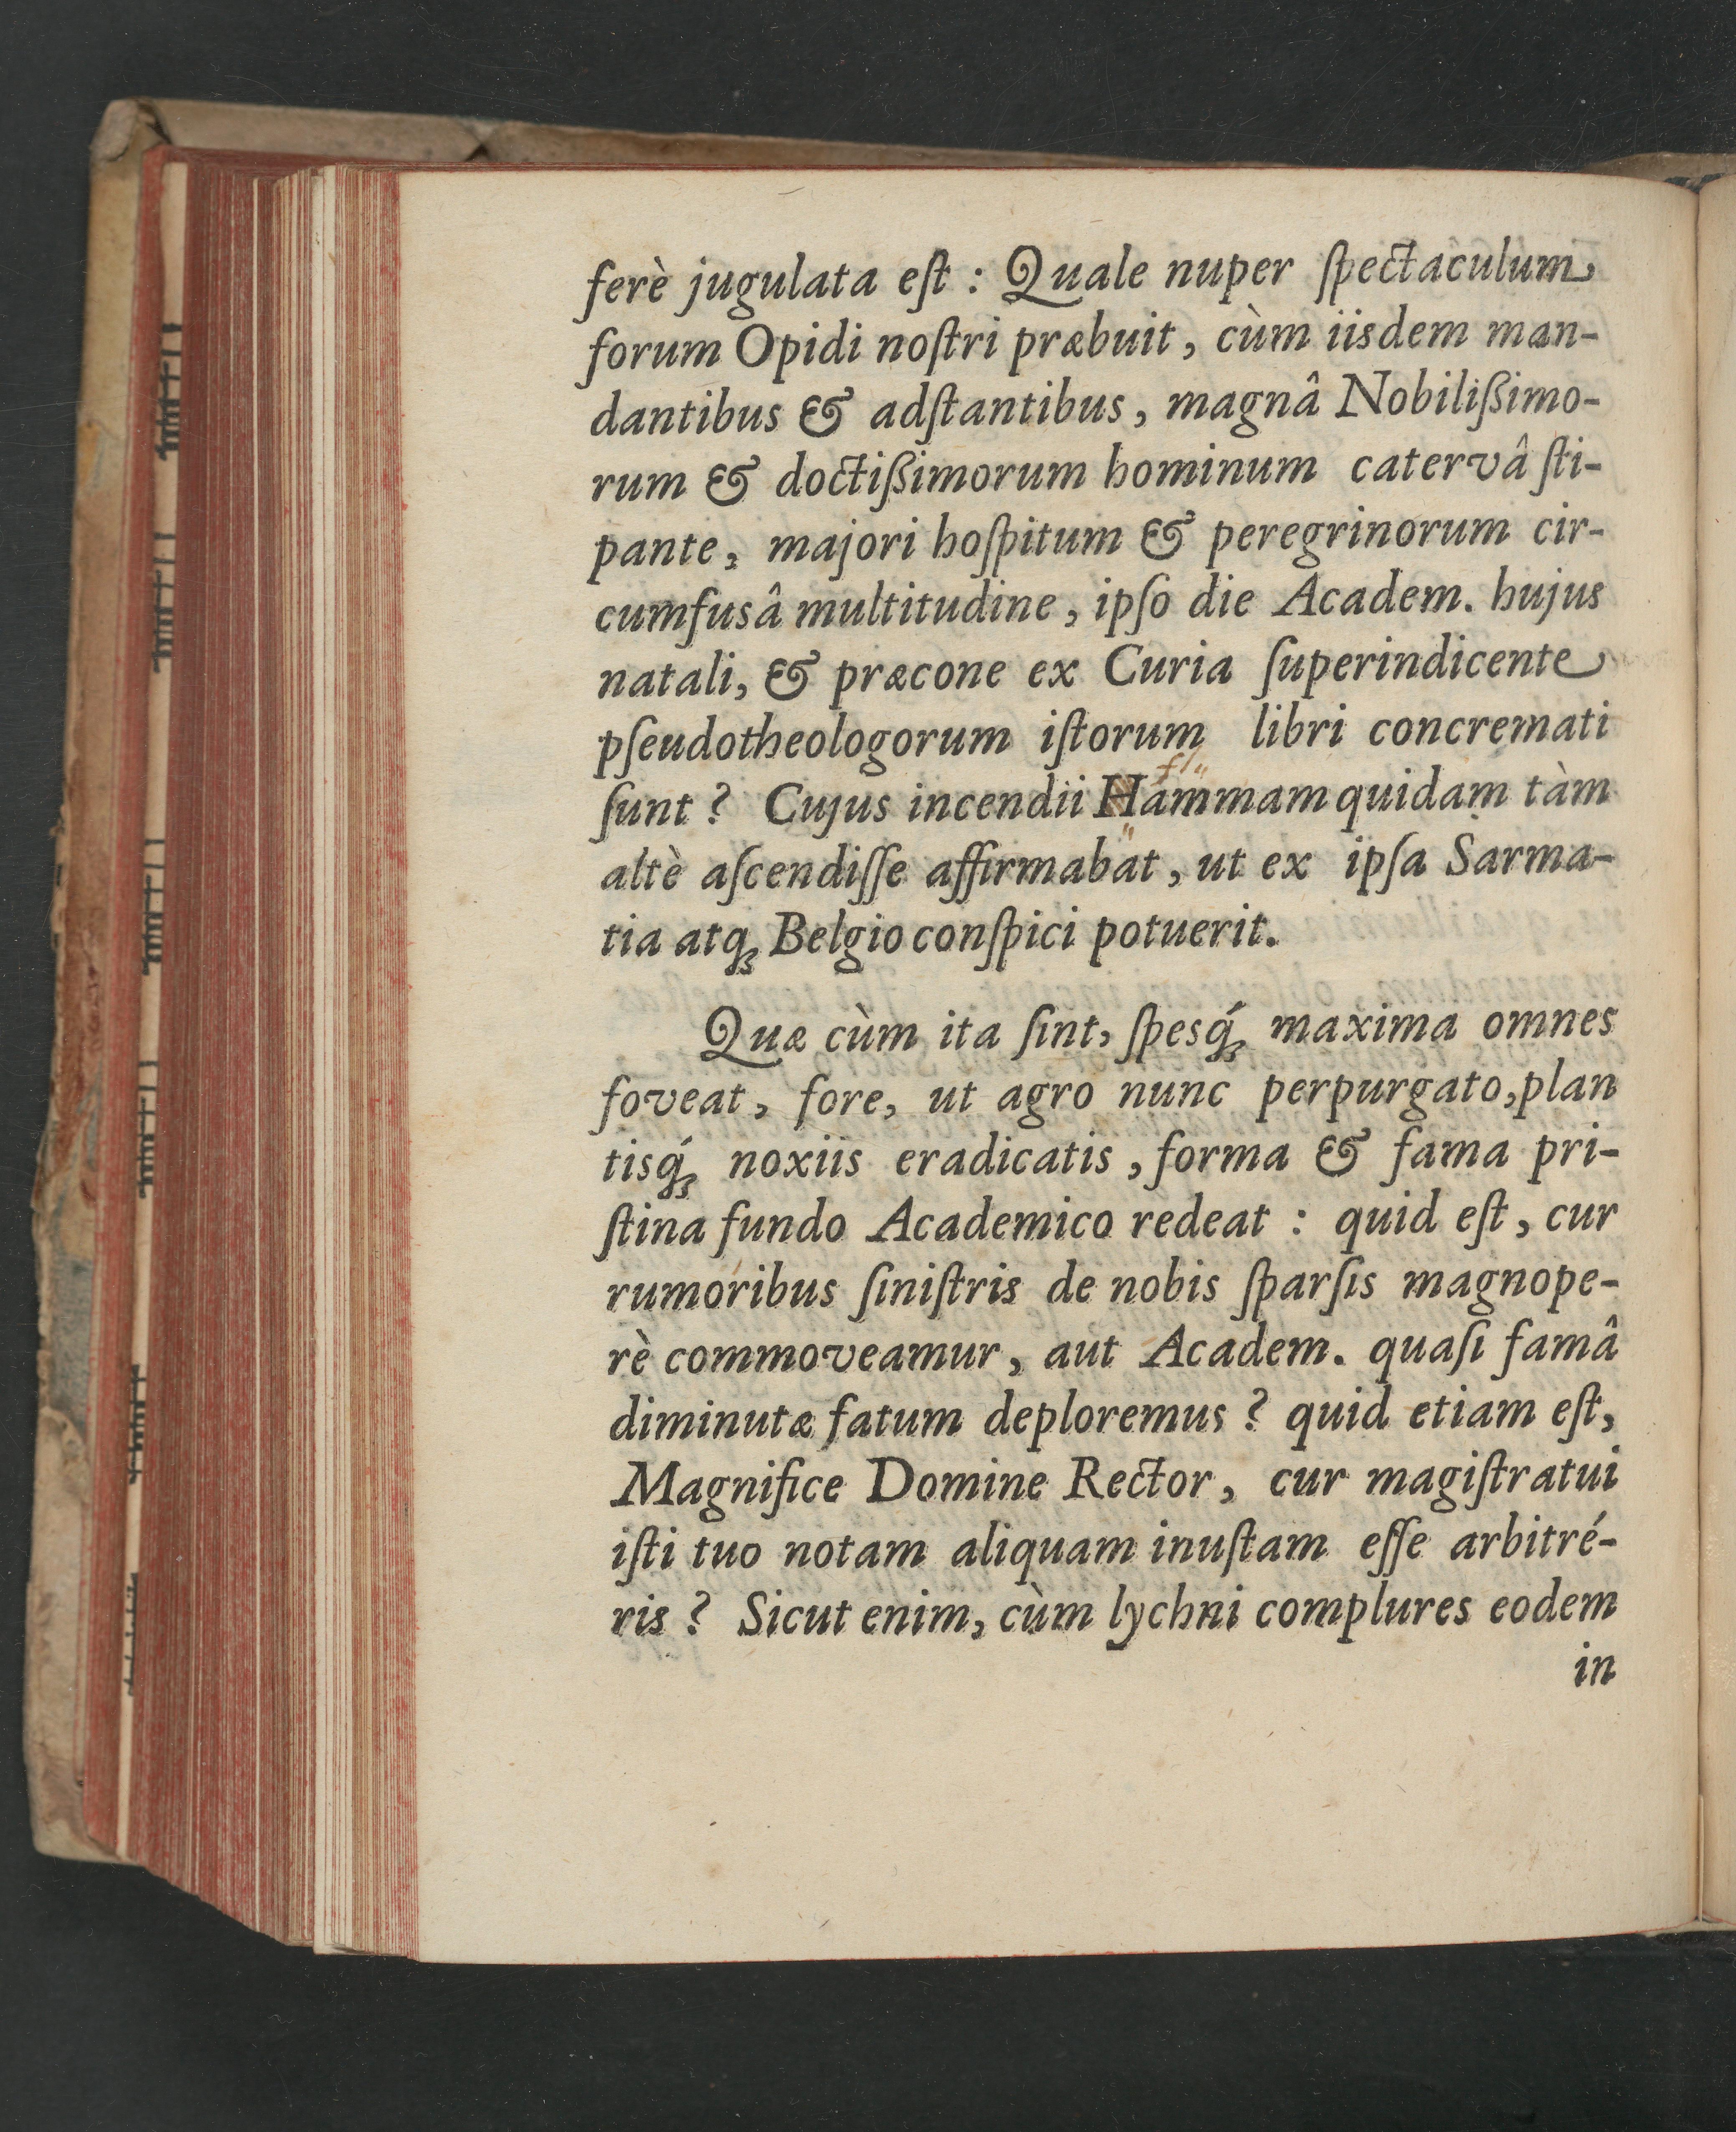 ferè jugulata eſt : Quale nuper ſpectaculum
forum Opidi noſtri præbuit, cùm iisdem man-
dantibus & adſtantibus, magnâ Nobilißimo-
rum & doctißimorum hominum catervâ ſti-
pante, majori hoſpitum & peregrinorum cir-
cumfusâ multitudine, ipſo die Academ. hujus
natali, & præcone ex Curia ſuperindicente
pſeudotheologorum iſtorum libri concremati
ſunt ? Cujus incendii Hammam quidam tàm
altè aſcendiſſe affirmabat, ut ex ipſa Sarma-
tia atq́ꝫ Belgio conſpici potuerit.
Quæ cùm ita ſint, ſpesq́ꝫ maxima omnes
foveat, fore, ut agro nunc perpurgato, plan
tisq́ꝫ noxiis eradicatis, forma & fama pri-
ſtina fundo Academico redeat : quid eſt, cur
rumoribus ſiniſtris de nobis ſparſis magnope-
rè commoveamur, aut Academ. quaſi famâ
diminutæ fatum deploremus ? quid etiam eſt,
Magnifice Domine Rector, cur magiſtratui
iſti tuo notam aliquam inuſtam eſſe arbitré-
ris ? Sicut enim, cùm lychni complures eodem
in